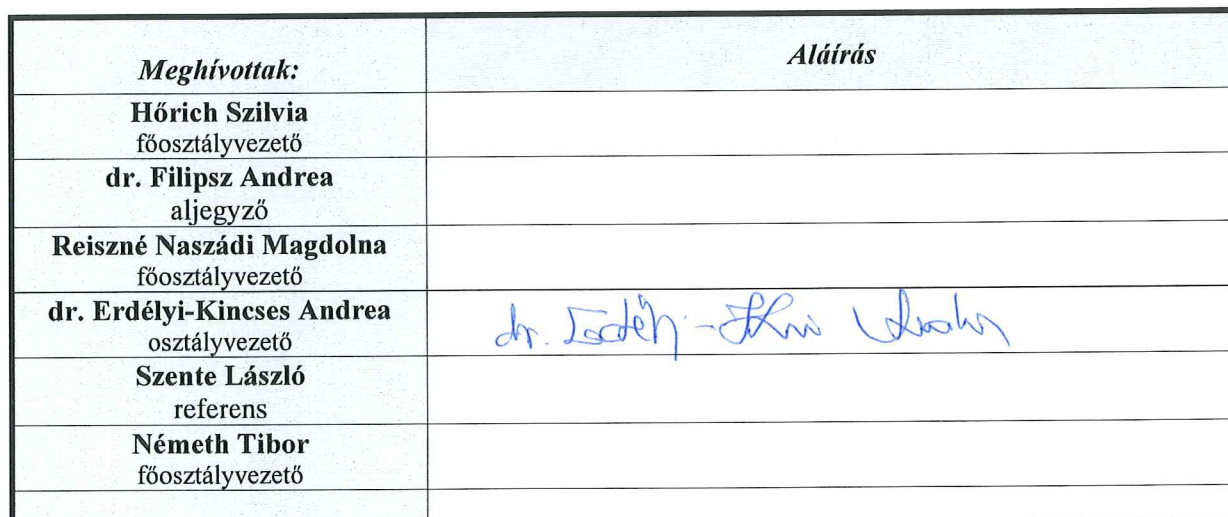 Meghívottak:
Aláírás
Hőrich Szilvia
főosztályvezető
dr. Filipsz Andrea
aljegyző
Reiszné Naszádi Magdolna
főosztályvezető
dr. Erdélyi-Kincses Andrea
osztályvezető
dr. Erdélyi-
Szente László
referens
Németh Tibor
főosztályvezető